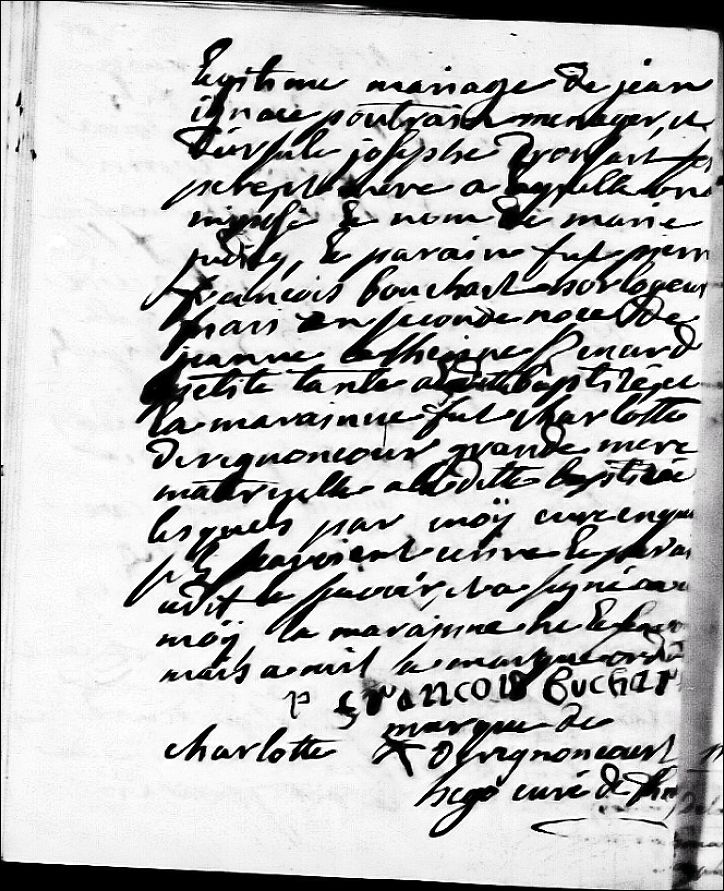 legitime mariage de jean
ignace poutrain menager, et
d'ursule josephe
pere et mere a laquelle on a
imposé le nom de marie
le parain fut pierre
francois bouchart horlogeur
mari en seconde noce de
jeanne catherine
tante a laditte baptisée et
la marainne fut charlotte
derignoncour grande mere
maternelle a laditte baptisée
lesquels par moÿ curé enquis
s'ils scavoient ecrire le parain
a dit le scavoir, et a signé avec
moÿ la marainne ne le scait
mais a mis la marque ordin
p francois buchar
marque de
charlotte X Derignoncourt
curé de